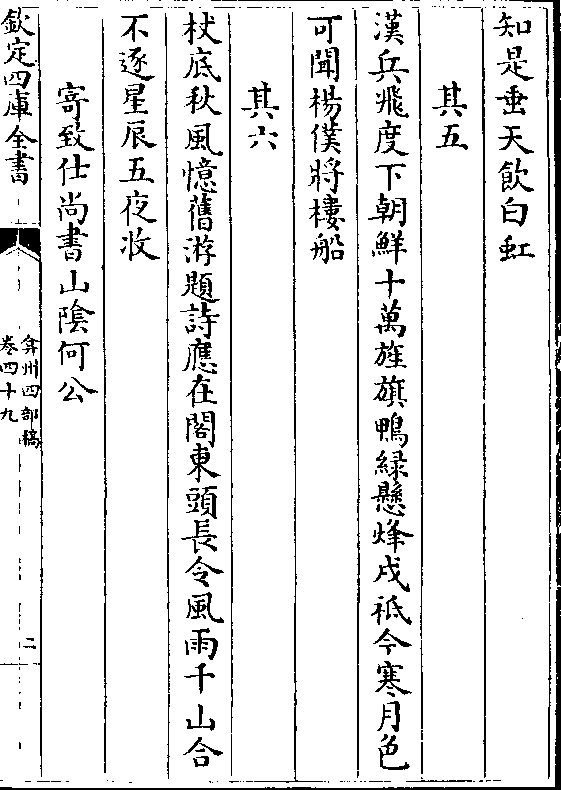 知是垂天飲白虹
其五
漢兵飛度下朝鮮十萬旌旗鴨緑懸烽戍祗今寒月色
可聞楊僕將樓船
其六
杖底秋風憶舊游題詩應在閣東頭長令風雨千山合
不逐星辰五夜收
寄致仕尚書山陰何公
欽定四庫全書
弇州四部稿
卷四十九
二